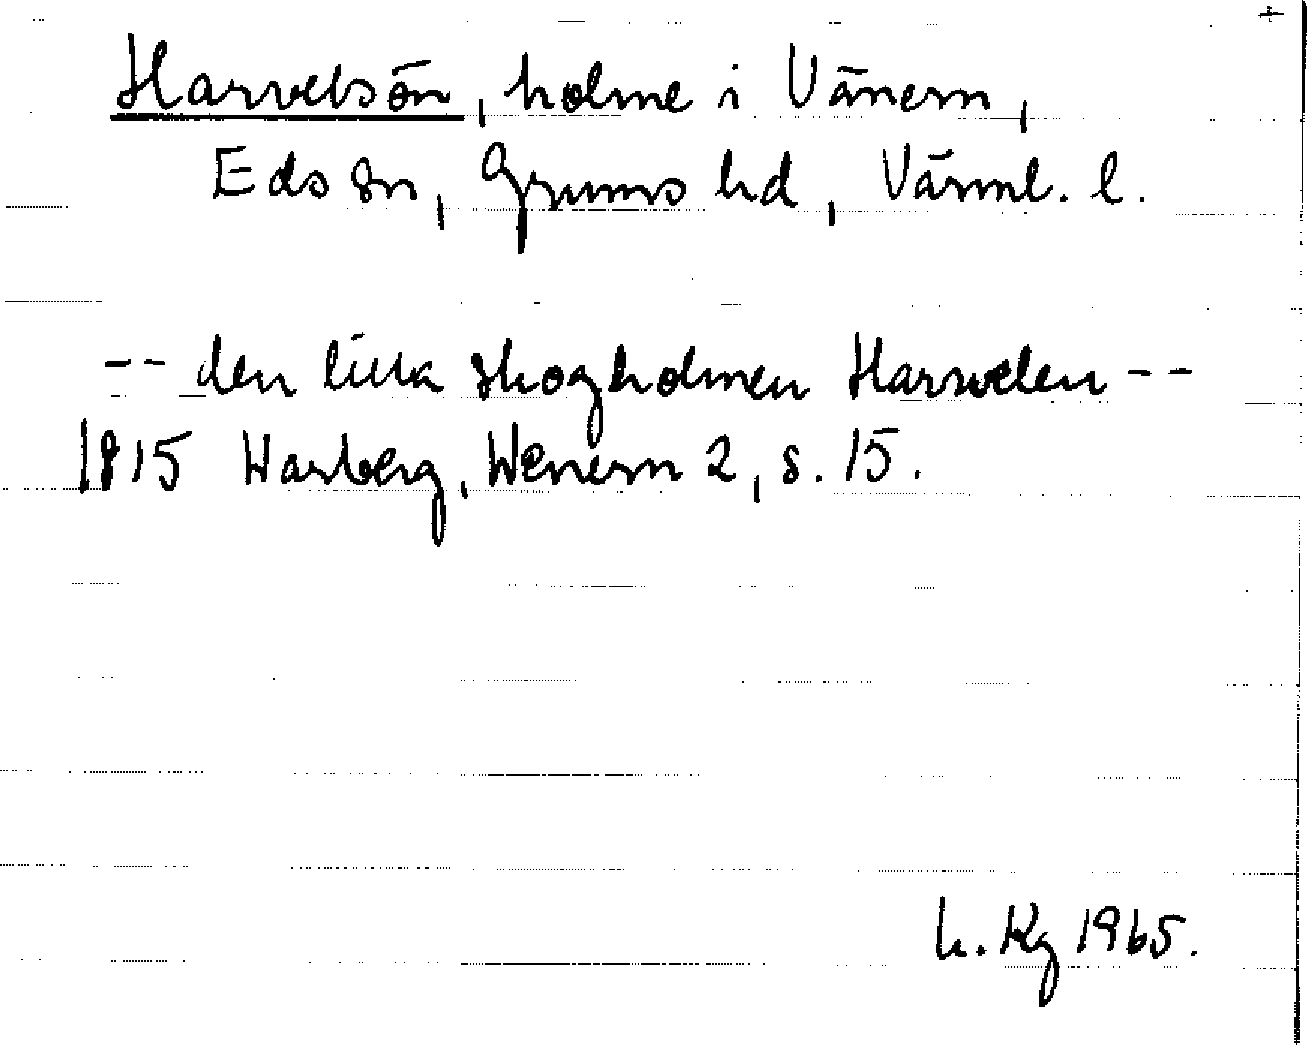 Harvelsön, holme i Vänern,
Eds sn, Grums hd, Värml. l.
-- den lilla skogholmen Harvelen --
1815 Warberg, Wenern 2, s. 15.
h. Kg 1965.